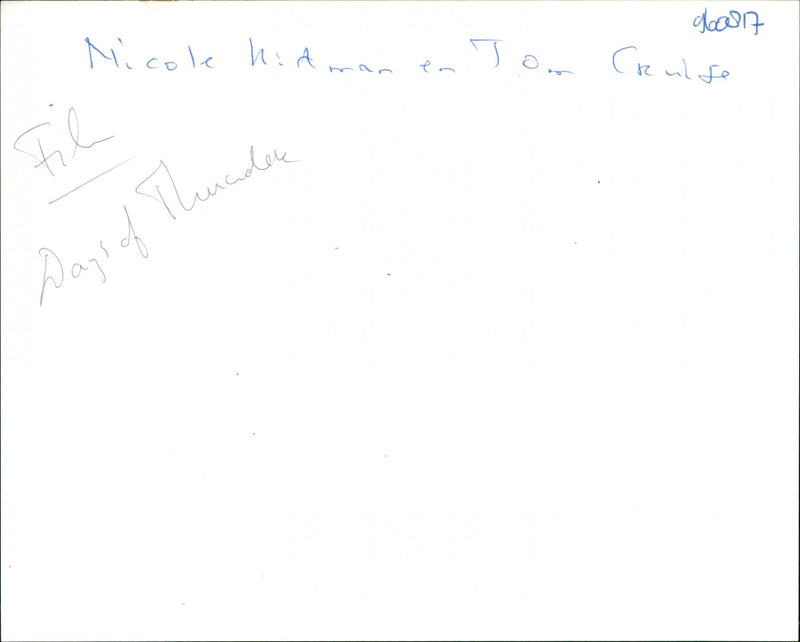 960817
Nicole Kidman en Tom Cruise
Film
Day's of Thunder